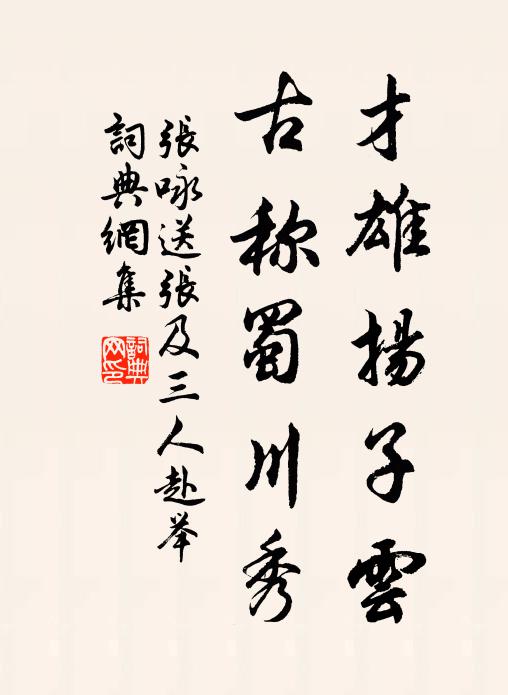 才雄揚子雲
古称蜀川秀
張咏送張及三人赴举
詞典網集
詞典
网印